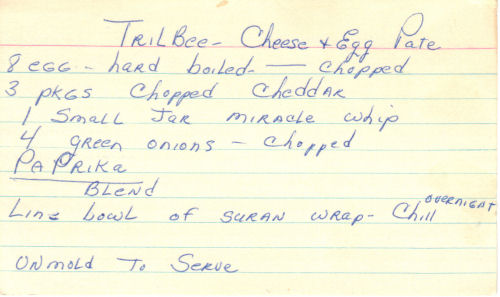 TRILBee- Cheese + Egg Pate
8 egg - hard boiled - chopped
3 pkgs chopped Cheddar
1 Small Jar miracle whip
4 green onions - chopped
PAPRika
BLend
Line bowl of suran wrap- Chill overnight
Unmold To Serve